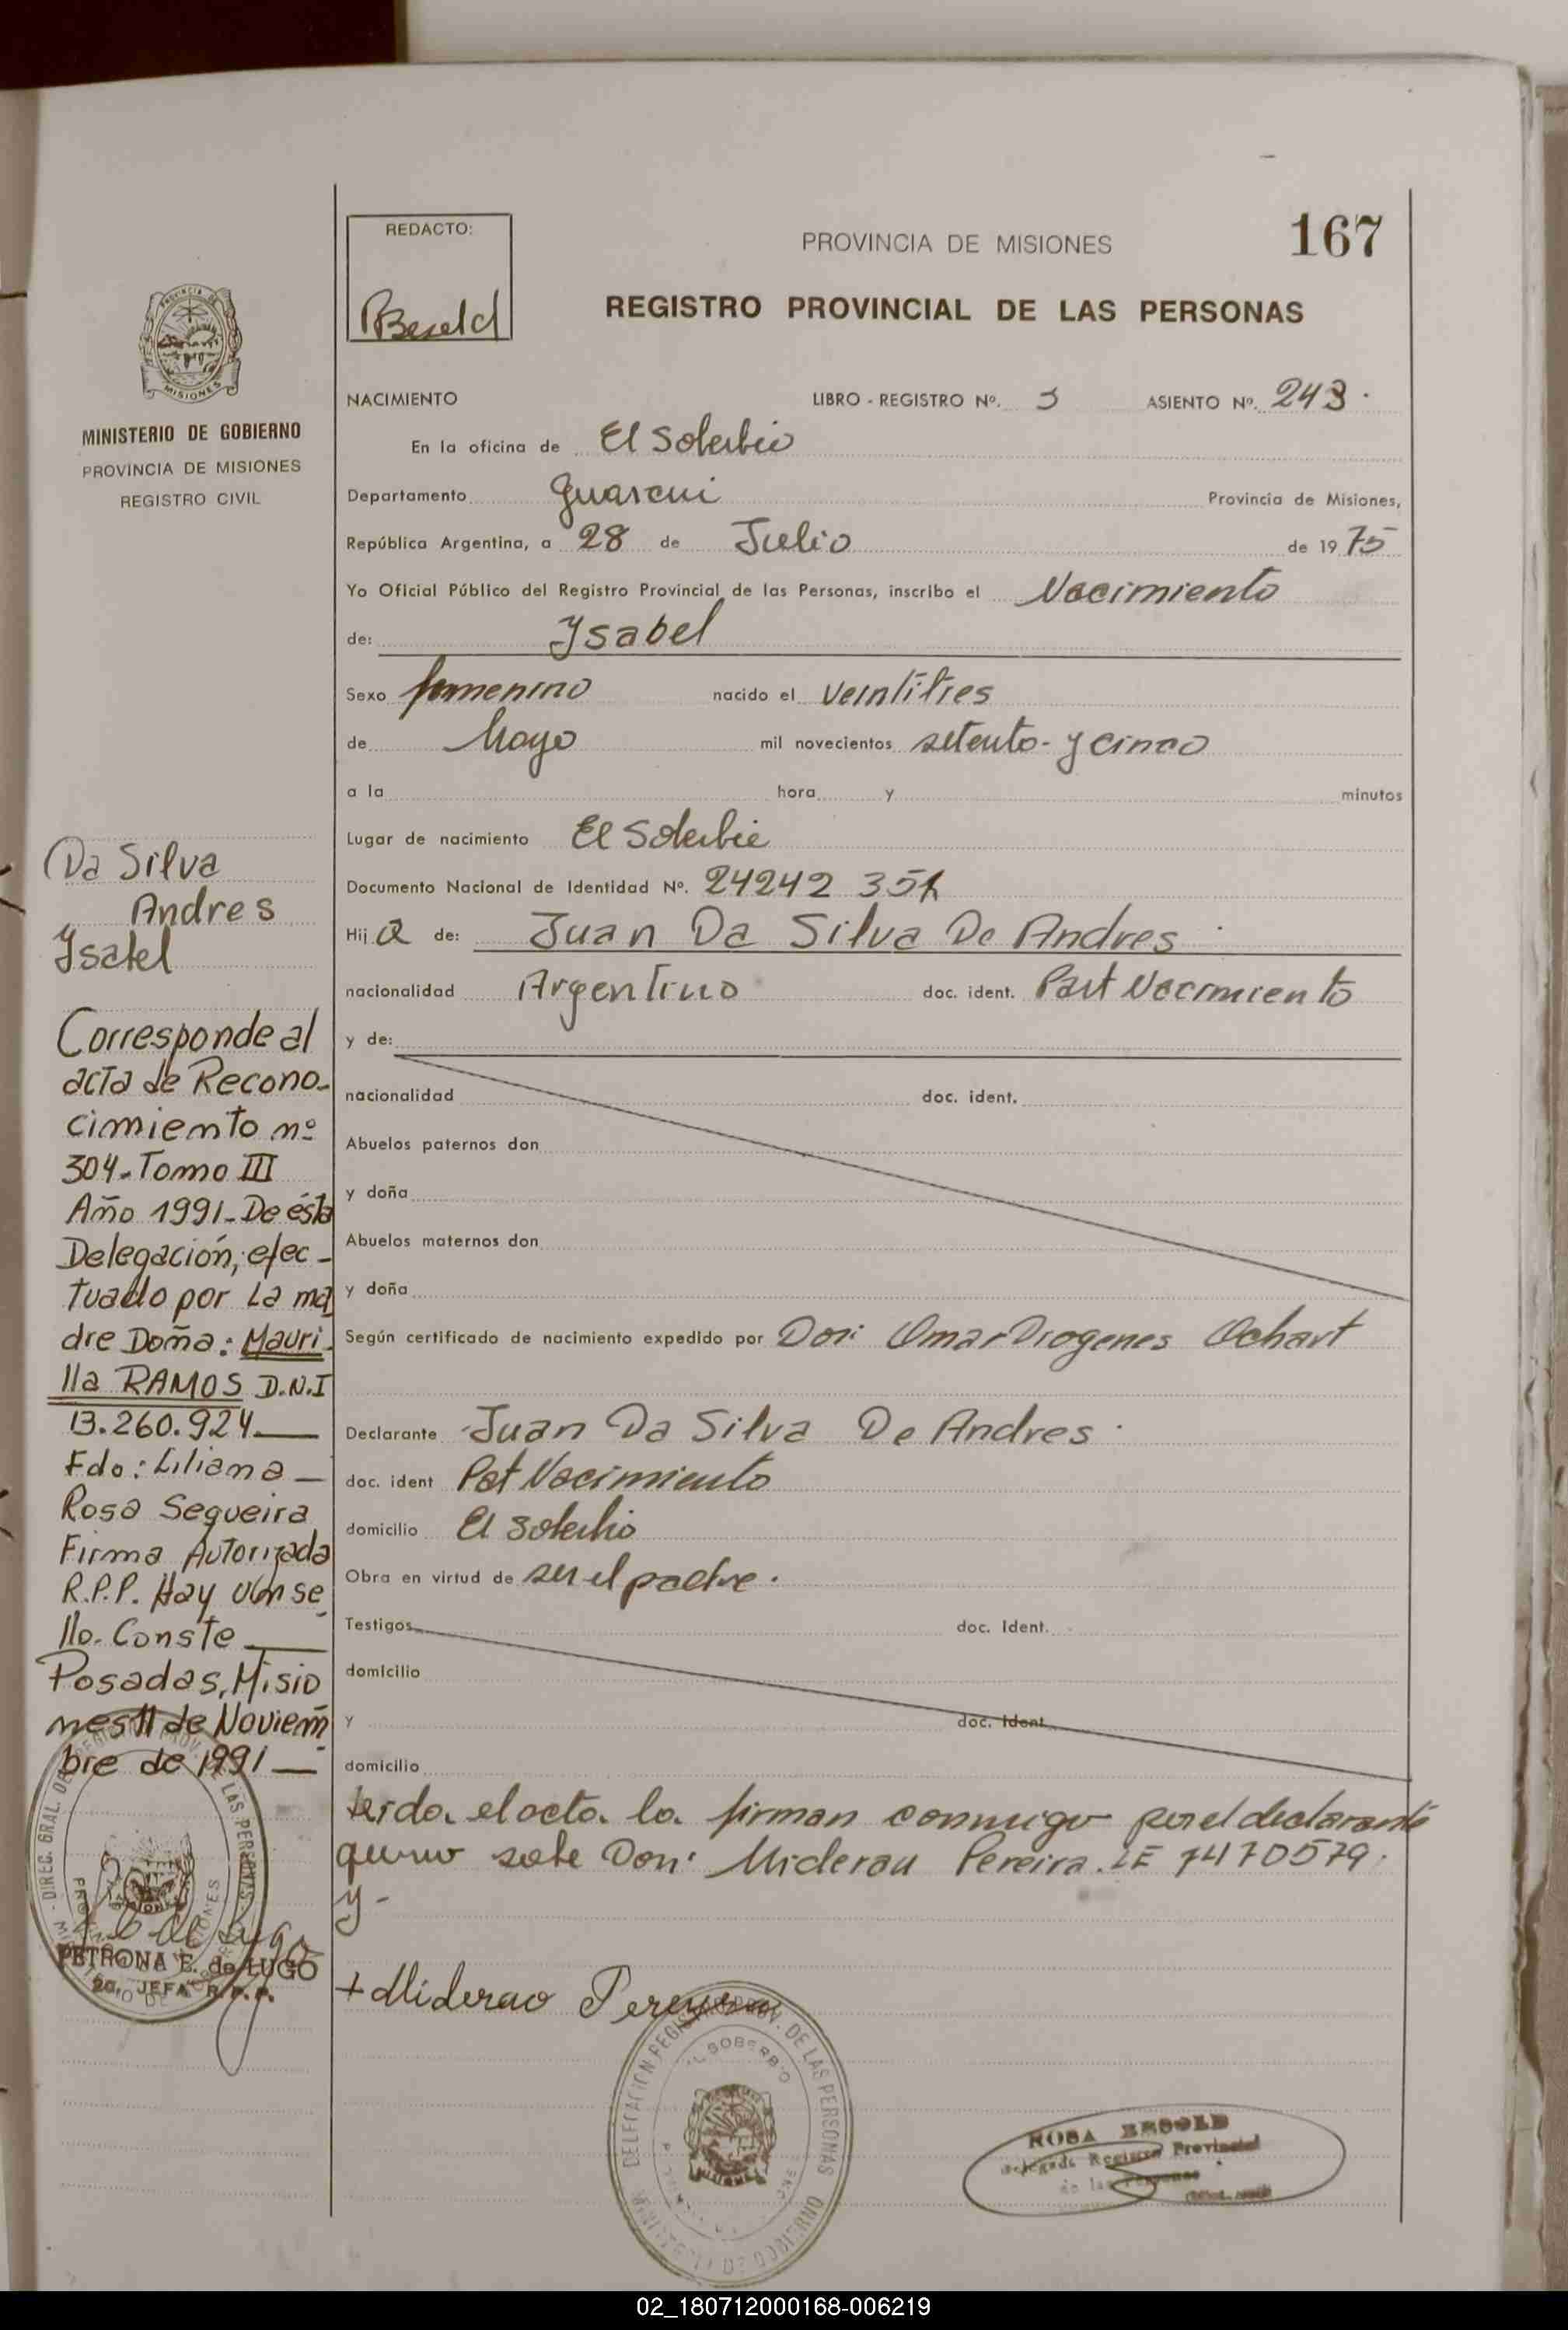 167
REDACTO:
PROVINCIA DE MISIONES
REGISTRO PROVINCIAL DE LAS PERSONAS
MINISTERIO DE GOBIERNO
PROVINCIA DE MISIONES
REGISTRO CIVIL
NACIMIENTO LIBRO - REGISTRO Nº. 3 ASIENTO Nº. 243.
En la oficina de El Soberbio
Departamento Guarani Provincia de Misiones,
República Argentina, a 28 de Julio de 1975
Yo Oficial Público del Registro Provincial de las Personas, inscribo el Nacimiento
de: Ysabel
Sexo femenino nacido el veintitres
de Mayo mil novecientos setenta y cinco
a la hora y minutos
Lugar de nacimiento El Soberbio
Documento Nacional de Identidad Nº. 24242
Hija de: Juan Da Silva De Andres
nacionalidad Argentino doc. ident. Part Nacimiento
y de:
nacionalidad doc. ident.
Abuelos paternos don
y doña
Abuelos maternos don
y doña
Según certificado de nacimiento expedido por Don: Omar Diogenes Ochart
Declarante Juan Da Silva De Andres.
doc. ident Pat Nacimiento
domicilio El Soberbio
Obra en virtud de ser el padre.
Testigos doc. Ident.
domicilio
y doc. Ident.
domicilio
Leida el acta la firman conmigo por el declarante
sabe Don: Miderau Pereira. LE 7470579.
y-
+ Miderao Pereyra
Da Silva
Andres
Ysabel
Corresponde al
acta de Recono-
cimiento nº
304-Tomo III
Año 1991-De ésta
Delegación, efec-
tuado por La ma
dre Doña: Mauri-
lla RAMOS D.N.I
13.260.924
Fdo: Liliana
Rosa Sequeira
Firma Autorizada
R.P.P. Hay un se
llo. Conste
Posadas, Misio
nes 11 de Noviem
bre de 1991
DIREC. GRAL. DEL REGISTRO PROV. DE LAS PERSONAS
PETRONA E. de LUGO
2a. JEFA R.P.P.
DELEGACION REGISTRO PROV. DE LAS PERSONAS
EL SOBERBIO
ROSA BESOLD
Delegada Registro Provincial
de las Personas
02_180712000168-006219